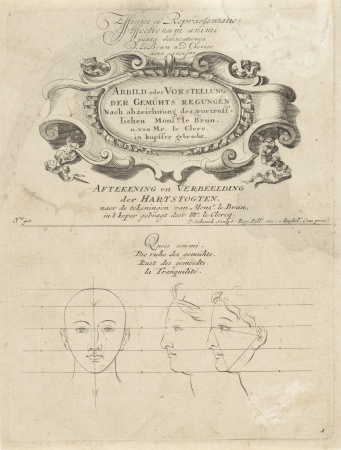 Effigies et Repræsentatio
Affectionum animi
juxta delineationes
le Brun a D. Clerico
ABBILD oder VORSTELLUNG
DER GEMÜHTS REGUNGEN
Nach abzeichnung des vortreff-
lichen Monsr. le Brun.
u. von Mr. le Clerc.
in kupffer gebracht.
AFTEKENING en VERBEELDING
der HARTSTOGTEN.
naar de tekeningen van Monsr. le Brun,
in't koper gebragt door Mr. le Clercq.
P. Schenck Sculpt. Reg. Poll. exc. Amstel. Cum privil.
Quies animi.
Die ruhe des gemühts.
Rust des gemoedts.
la Tranquilité.
1